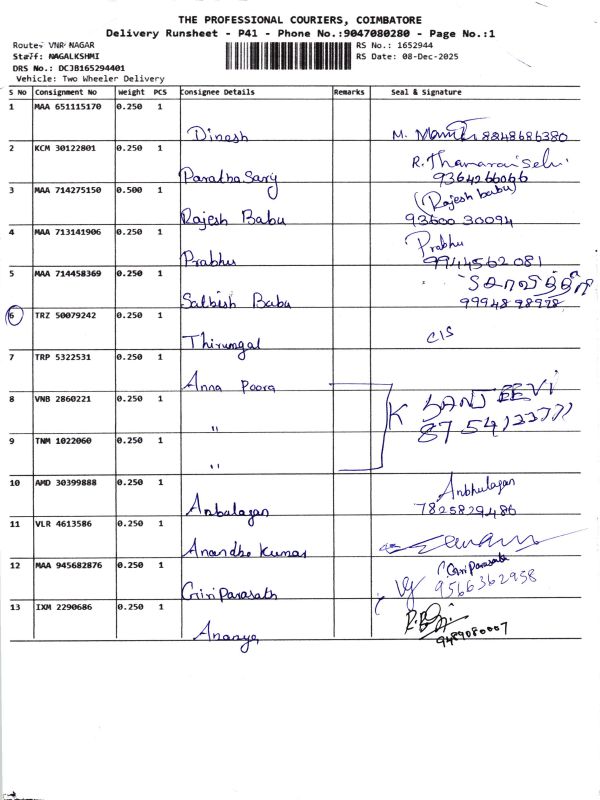 THE PROFESSIONAL COURIERS, COIMBATORE
Delivery Runsheet - P41 - Phone No.:9047080280 - Page No.:1
Route: VNR NAGAR
RS No.: 1652944
Staff: NAGALKSHMI
RS Date: 08-Dec-2025
DRS No.: DCJB165294401
Vehicle: Two Wheeler Delivery
S No Consignment No Weight PCS Consignee Details Remarks Seal & Signature
1 MAA 651115170 0.250 1
Dinesh M. 8248686380
2 KCM 30122801 0.250 1
R. Thamaraiselvi
9364266066
3 MAA 714275150 0.500 1
(Rajesh babu)
Rajesh Babu 93600 30094
4 MAA 713141906 0.250 1
Prabhu
Prabhu 9944562081
5 MAA 714458369 0.250 1
Babu 99948 98928
6 TRZ 50079242 0.250 1
C/S
Thirumgal
7 TRP 5322531 0.250 1
Anna Poora
8 VNB 2860221 0.250 1
K SANJEEVI
"
9 TNM 1022060 0.250 1
"
10 AMD 30399888 0.250 1
Anbhulagan
Anbalagan 7825829486
11 VLR 4613586 0.250 1
Anandha Kumar
12 MAA 945682876 0.250 1
Giri Parasath
9566362958
Giri Parasath
13 IXM 2290686 0.250 1
Ananya 9489080007